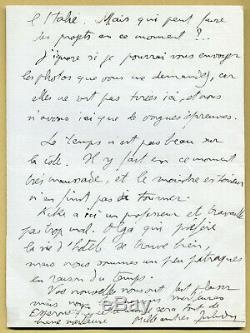 l'Italie. Mais qui peut faire
les projets en ce moment ?...
J'ignore si je pourrai vous envoyer
les photos que vous me demandez, car
elles ne sont pas tirées ici, et nous
n'avons ici que de vagues épreuves.
Le temps n'est pas beau sur
la côte. Il y fait en ce moment
très maussade, et le moindre
n'en finit pas de tourner.
a ici un professeur et travaille
pas trop mal. Olga qui préfère
la vie d'hôtel se trouve bien,
mais nous sommes un peu
en raison du temps.
Vos nouvelles nous ont fait plaisir
mais nous meilleures
Espérons sera tout de
même meilleure Mille amitiés